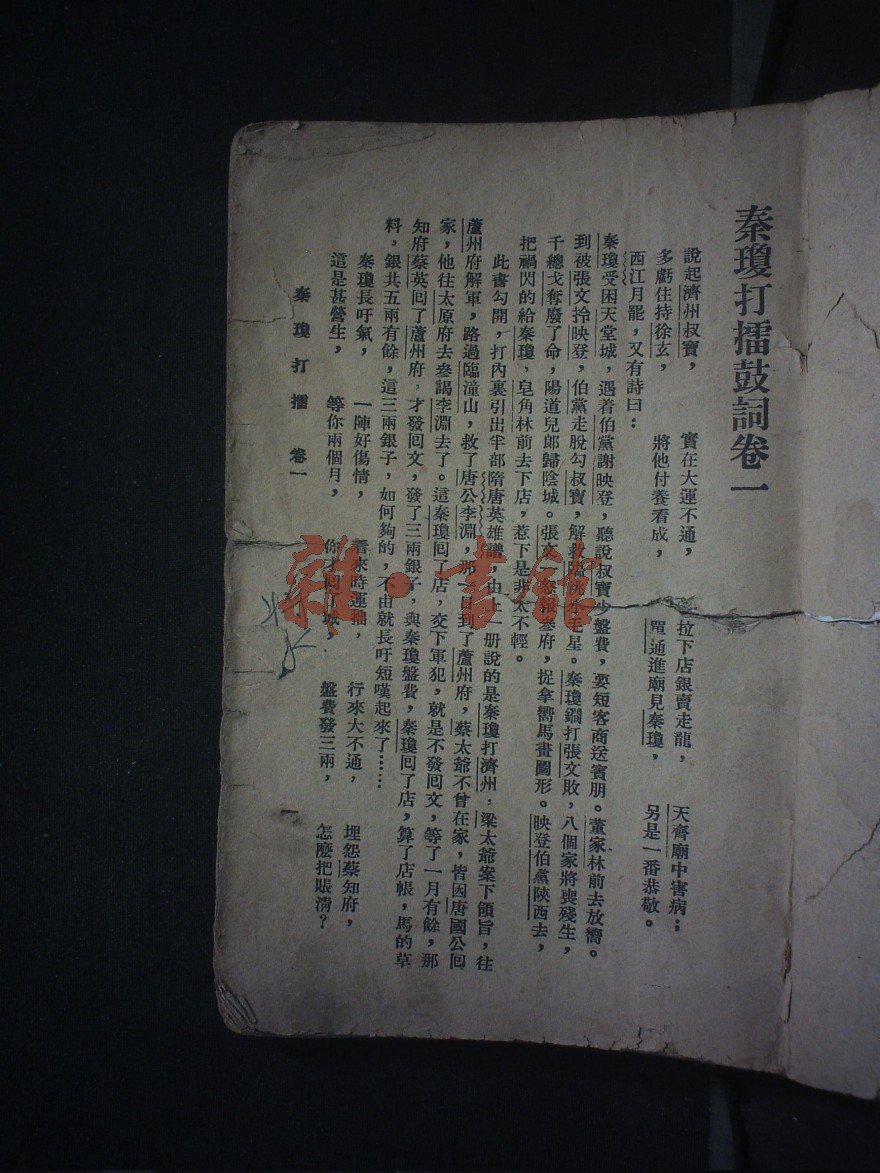 秦瓊打擂鼓詞卷一
說起濟州叔寶， 實在大運不通， 拉下店銀賣走龍， 天齊廟中害病；
多虧住持徐玄， 將他付養看成， 單通進廟見秦瓊， 另是一番恭敬。
西江月罷，又有詩曰：
秦瓊受困天堂城，遇着伯黨謝映登，聽說叔寶少盤費，要短客商送賓朋。董家林前去放嚮。
到被張文拎映登，伯黨走脫勾叔寶，解救 毛星。秦瓊鐧打張文敗，八個家將喪殘生，
千總戈奪廢了命，陽道兒郎歸陰城。張文 參府，捉拿嚮馬畫圖形。映登伯黨陝西去，
把禍閃的給秦瓊，皂角林前去下店，惹下是非太不輕。
此書勾開，打內裏引出半部隋唐英雄譜，由上一册說的是秦瓊打濟州，梁太爺案下領旨，往
蘆州府解軍，路過臨潼山，救了唐公李淵，那一日到了蘆州府，蔡太爺不曾在家，皆因唐國公囘
家，他往太原府去參謁李淵去了。這秦瓊囘了店，交下軍犯，就是不發囘文，等了一月有餘，那
知府蔡英囘了蘆州府，才發囘文，發了三兩銀子，與秦瓊盤費，秦瓊囘了店，算了店帳，馬的草
料，銀共五兩有餘，這三兩銀子，如何夠的，不由就長吁短嘆起來了……
秦瓊長吁氣， 一陣好傷情， 看來時運拙， 行來大不通， 埋怨蔡知府，
這是甚營生， 等你兩個月， 你才囘了城， 盤費發三兩， 怎麽把賬清？
秦瓊打擂 卷一 一
雜·書館